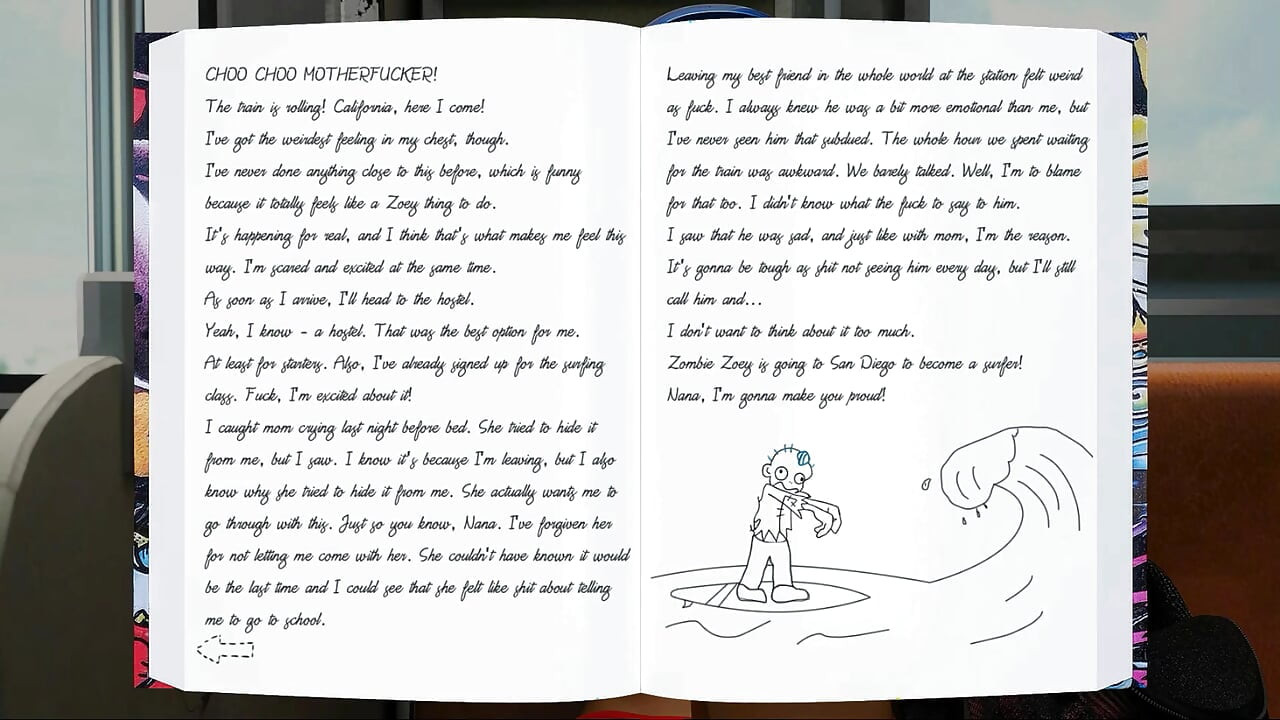 CHOO CHOO MOTHERFUCKER!
The train is rolling! California, here I come!
I've got the weirdest feeling in my chest, though.
I've never done anything close to this before, which is funny
because it totally feels like a Zoey thing to do.
It's happening for real, and I think that's what makes me feel this
way. I'm scared and excited at the same time.
As soon as I arrive, I'll head to the hostel.
Yeah, I know - a hostel. That was the best option for me.
At least for starters. Also, I've already signed up for the surfing
class. Fuck, I'm excited about it!
I caught mom crying last night before bed. She tried to hide it
from me, but I saw. I know it's because I'm leaving, but I also
know why she tried to hide it from me. She actually wants me to
go through with this. Just so you know, Nana. I've forgiven her
for not letting me come with her. She couldn't have known it would
be the last time and I could see that she felt like shit about telling
me to go to school.
Leaving my best friend in the whole world at the station felt weird
as fuck. I always knew he was a bit more emotional than me, but
I've never seen him that subdued. The whole hour we spent waiting
for the train was awkward. We barely talked. Well, I'm to blame
for that too. I didn't know what the fuck to say to him.
I saw that he was sad, and just like with mom, I'm the reason.
It's gonna be tough as shit not seeing him every day, but I'll still
call him and...
I don't want to think about it too much.
Zombie Zoey is going to San Diego to become a surfer!
Nana, I'm gonna make you proud!